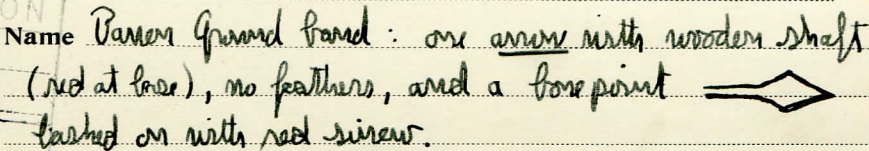 Name Barren Ground band : one arrow with wooden shaft
(red at base), no feathers, and a bone point
lashed on with red sinew.